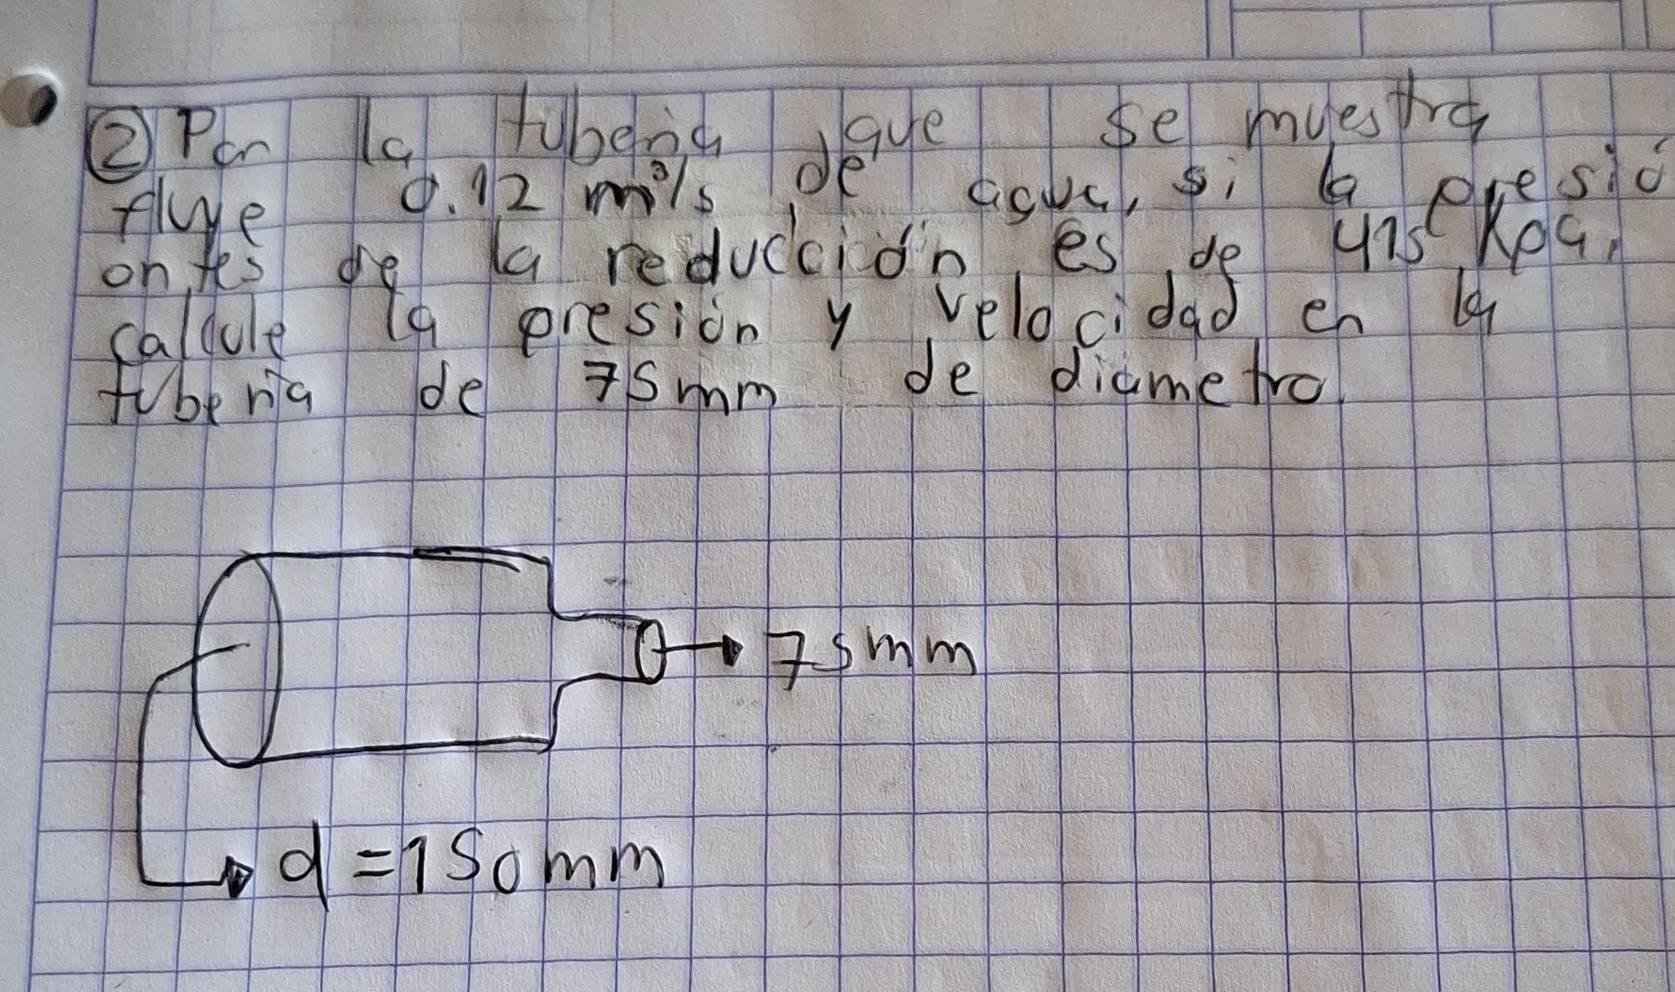 ② Por la tubería que se muestra
fluye 0.12 m³/s de agua, si la presió
antes de la reducción es de 415 Kpa,
calcule la presión y velocidad en la
tubería de 75mm de diametro.
75mm
d=150mm